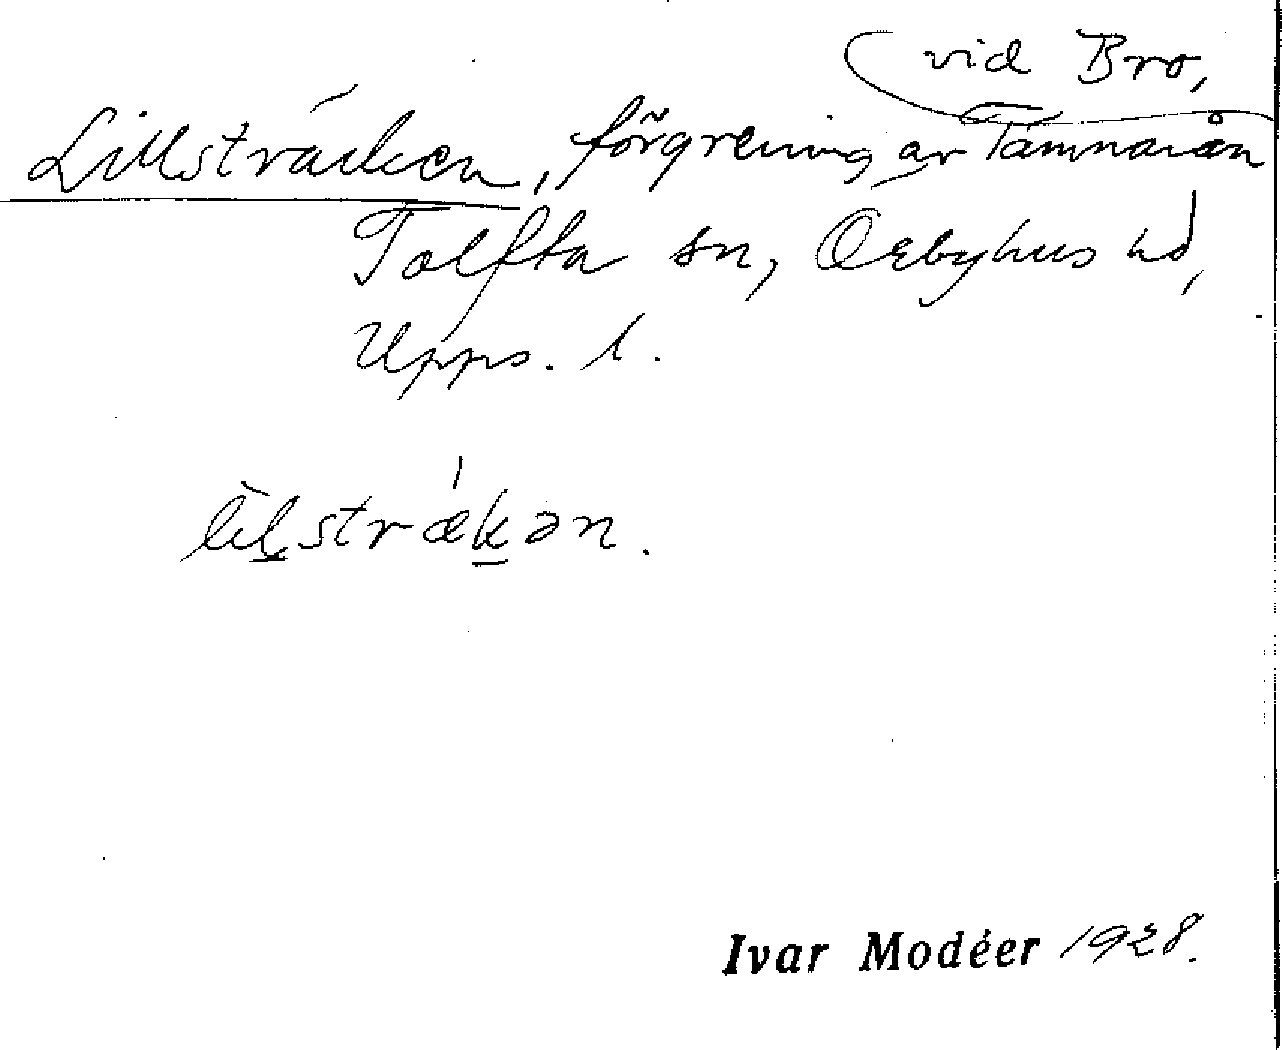 vid Bro,
Lillsträcken, förgrening av Tämnarån
Tolfta sn, Örbyhus hd,
Upps. l.
lìlsträ́kən.
Ivar Modéer 1928.